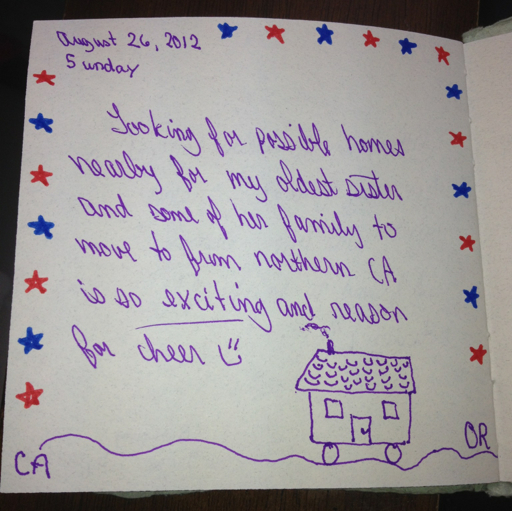 August 26, 2012
Sunday
Looking for possible homes
nearby for my oldest sister
and some of her family to
move to from northern CA
is so exciting and reason
for cheer
CA
OR